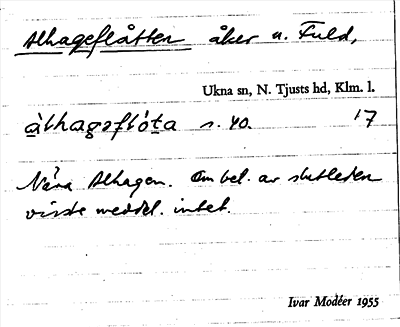 Alhageflåtten åker u. Fuld,
Ukna sn, N. Tjusts hd, Klm. l.
àlhagəflóta s. 40. 17
Nära Alhagen. Om bet. av slutleden
visste meddel. intet.
Ivar Modéer 1955